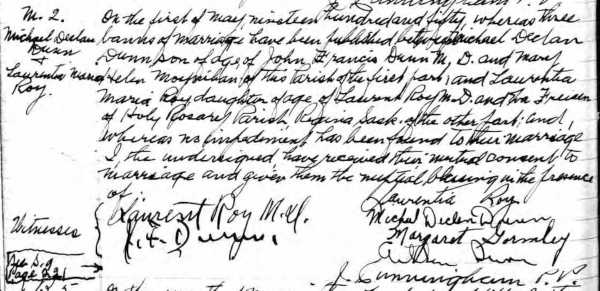 M. 2.
Michael Declan
Dunn
+
Laurentia Maria
Roy.
On the first of May, nineteen hundred and fifty, whereas three
banns of marriage have been published between Michael Declan
Dunn, son of age, of John Francis Dunn M.D. and Mary
Helen of this Parish of the first part; and Laurentia
Maria Roy daughter of age of Laurent Roy M.D. and
of Holy Rosary Parish Regina Sask. of the other part: and,
whereas no impediment has been found to their marriage
I, the undersigned, have received their mutual consent to
marriage and given them the nuptial blessing in the presence
of
Laurentia Roy
Laurent Roy M.D.
Michael Declan Dunn
Margaret Gormley
Witnesses
J. Cunningham P.P.